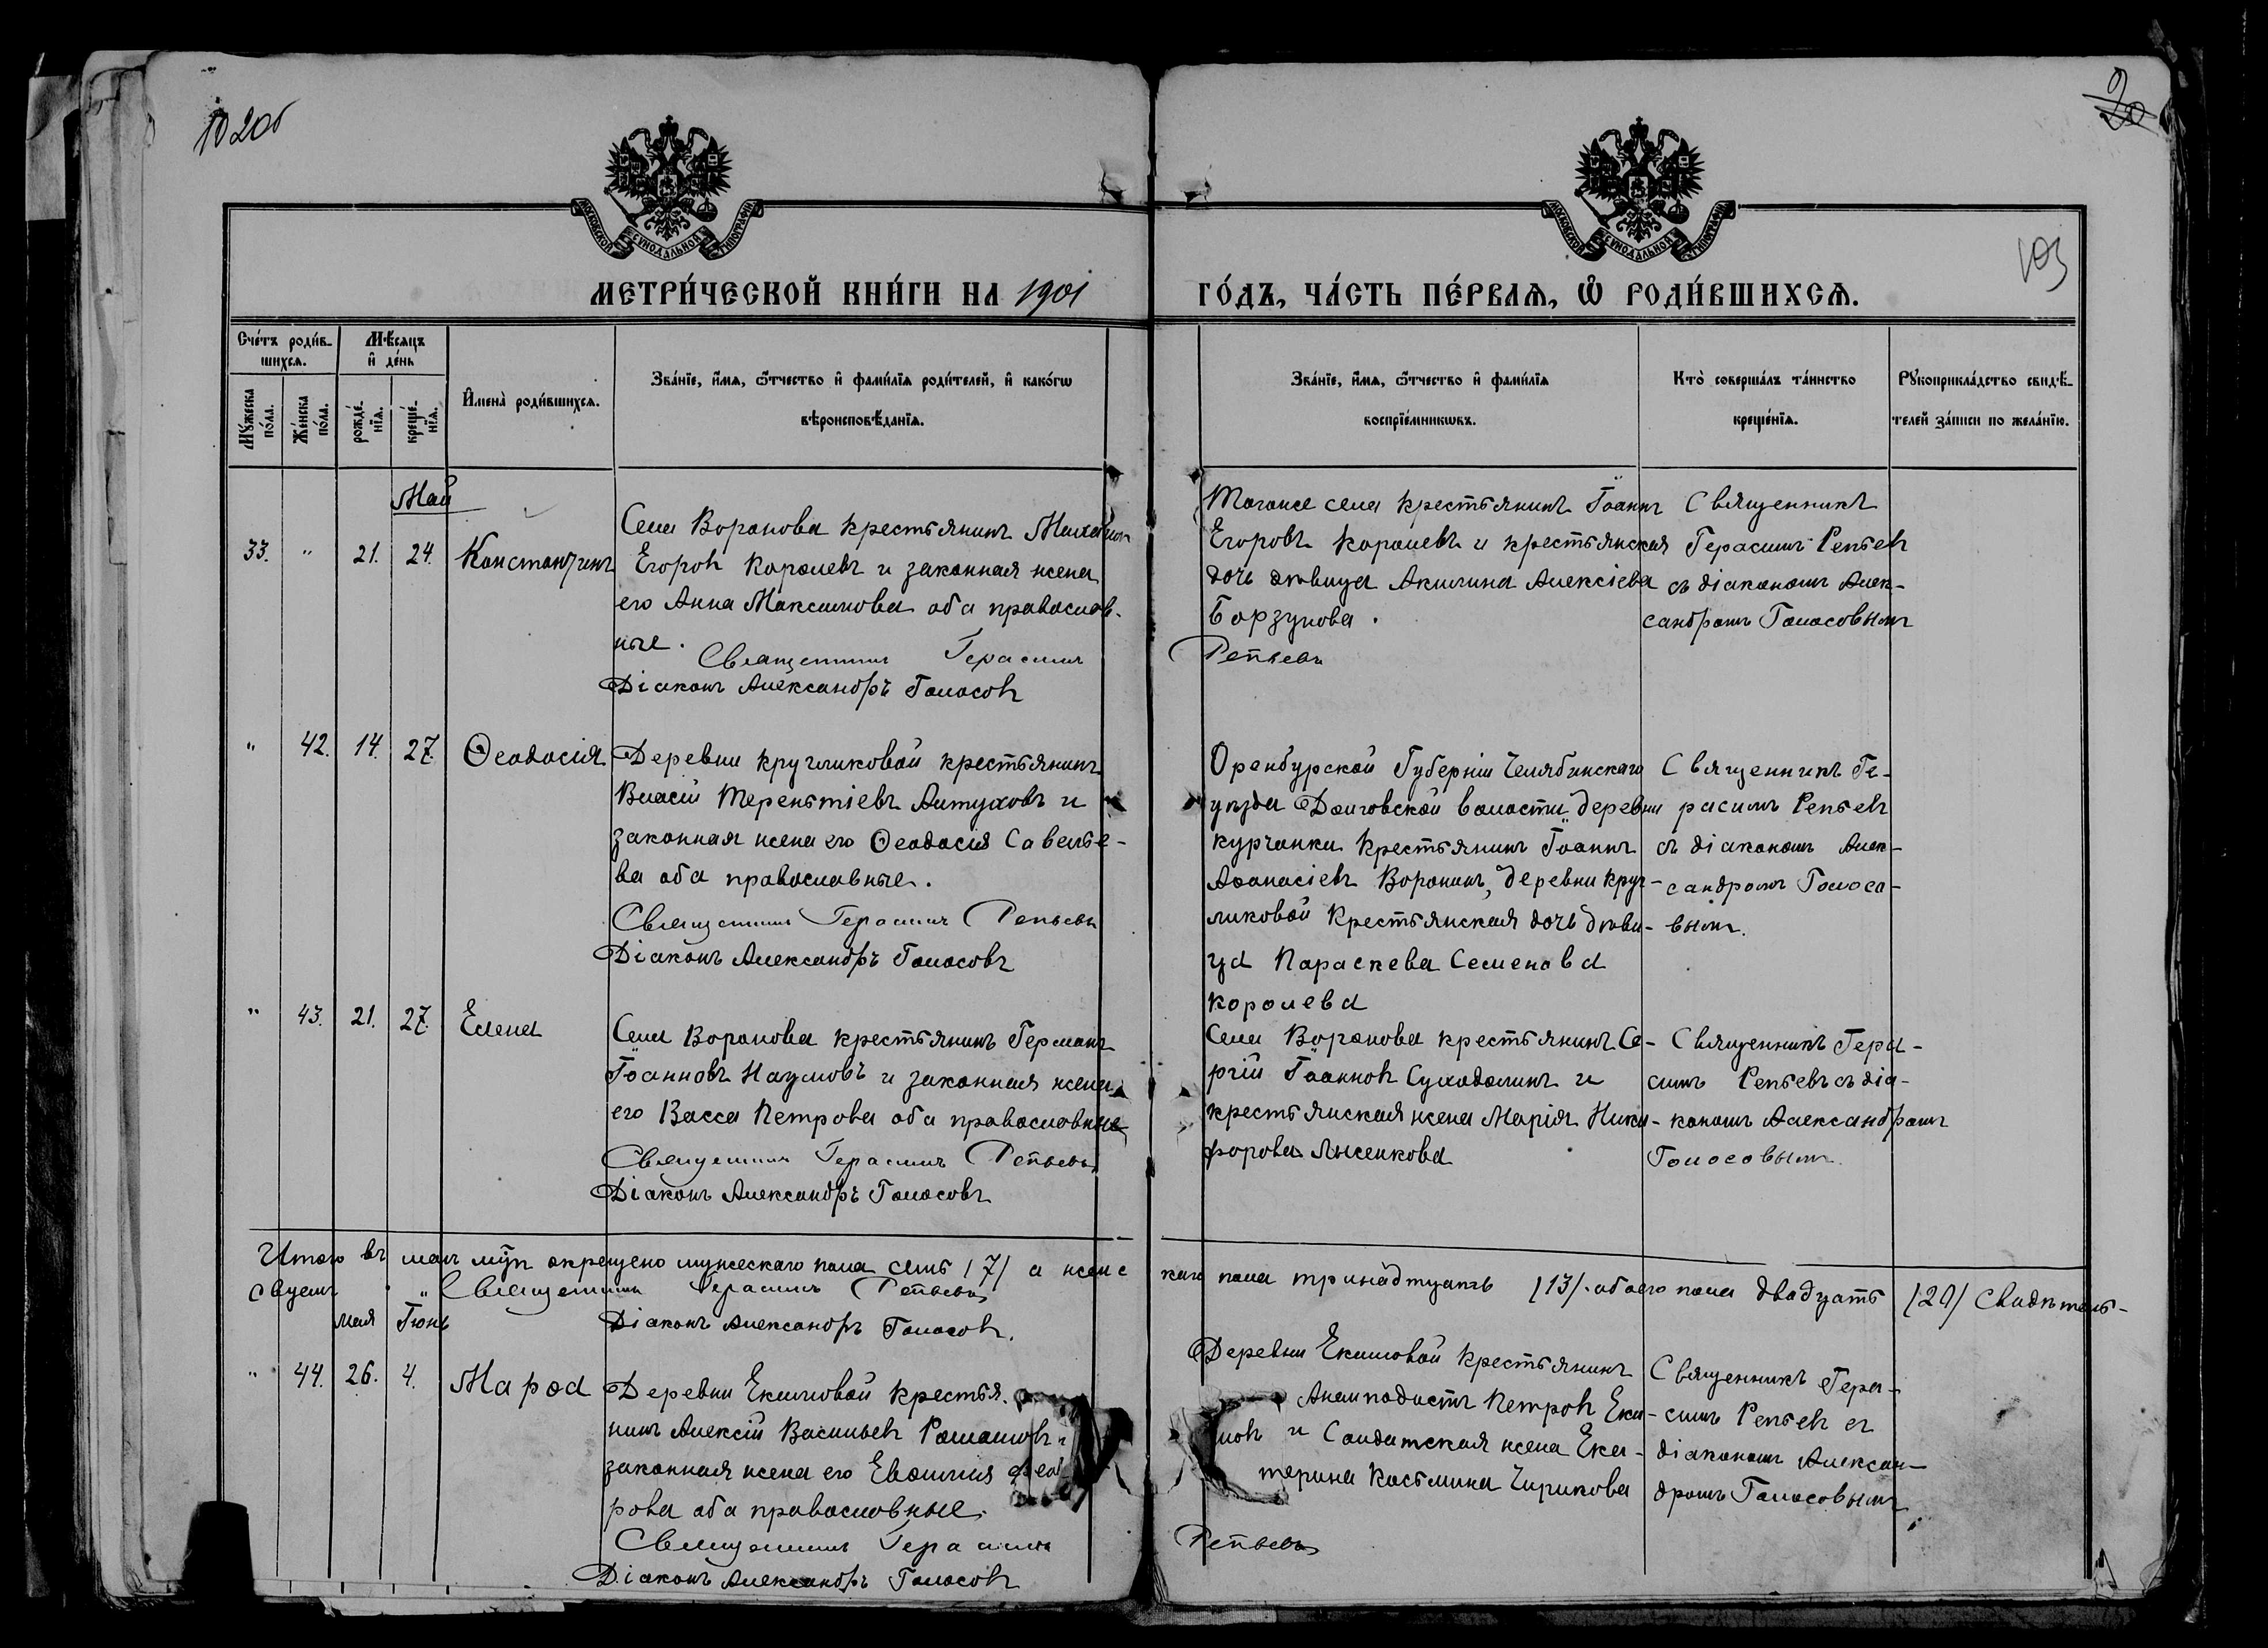 102об
20
103
МОСКОВСКОЙ СѴНОДАЛЬНОЙ ТИПОГРАФІИ
МОСКОВСКОЙ СѴНОДАЛЬНОЙ ТИПОГРАФІИ
МЕТРИ́ЧЕСКОЙ КНИ́ГИ НА 1901
ГО́ДЪ, ЧА́СТЬ ПЕ́РВАѦ, Ѡ҆ РОДИ́ВШИХСѦ.
Сче́тъ роди́в-
шихсѧ.
Мѣ́сѧцъ
и҆ де́нь
Мꙋ́жеска
по́ла.
Же́нска
по́ла.
рожде́-
нїѧ.
креще́-
нїѧ.
И҆мена̀ роди́вшихсѧ.
Зва́нїе, и҆́мѧ, ѻ҆́тчество и҆ фами́лїѧ роди́телей, и҆ како́гѡ
вѣроисповѣ́данїѧ.
Зва́нїе, и҆́мѧ, ѻ҆́тчество и҆ фами́лїѧ
воспрїе́мникѡвъ.
Кто̀ соверша́лъ та́инство
креще́нїѧ.
Рꙋкоприкла́дство свидѣ́-
телей за́писи по жела́нїю.
Май
33. " 21. 24. Константинъ
Села Воронова крестьянинъ Михаилъ
Егоровъ Королевъ и законная жена
его Анна Максимова оба православ-
ные.
Священникъ Герасимъ
Репьевъ
Діаконъ Александръ Голосовъ
Тогоже села крестьянинъ Іоаннъ
Егоровъ Королевъ и крестьянская
дочь дѣвица Акилина Алексіева
Борзунова.
Священникъ
Герасимъ Репьевъ
съ діакономъ Алек-
сандромъ Голосовымъ
" 42. 14. 27. Ѳеодосія
Деревни Кругликовой крестьянинъ
Власій Терентіевъ Алтуховъ и
законная жена его Ѳеодосія Савелье-
ва оба православные.
Священникъ Герасимъ Репьевъ
Діаконъ Александръ Голосовъ
Оренбурской Губерніи Челябинскаго
уѣзда Долговской волости деревни
Курчанки крестьянинъ Іоаннъ
Аѳанасіевъ Воронинъ, деревни Круг-
ликовой крестьянская дочь дѣви-
ца Параскева Семенова
Королева
Священникъ Ге-
расимъ Репьевъ
съ діакономъ Алек-
сандромъ Голосо-
вымъ.
" 43. 21. 27. Елена
Села Воронова крестьянинъ Германъ
Іоанновъ Наумовъ и законная жена
его Васса Петрова оба православные
Священникъ Герасимъ Репьевъ
Діаконъ Александръ Голосовъ
Села Воронова крестьянинъ Се-
ргій Іоанновъ Суходолинъ и
крестьянская жена Марія Ники-
форова Лысенкова
Священникъ Гера-
симъ Репьевъ съ діа-
кономъ Александромъ
Голосовымъ.
Итого въ маѣ мцѣ окрещено мужескаго пола семь /7/ а женс каго пола тринадцать /13/. обоего пола двадцать /20/ Свидѣтель-
свуемъ Священникъ Герасимъ Репьевъ
Діаконъ Александръ Голосовъ.
мая Іюнь
" 44. 26. 4. Марѳа
Деревни Екимовой крестья-
нинъ Алексій Васильевъ Ромашовъ и
законная жена его Евѳимия Ѳеод
рова оба православные.
Священникъ Герасимъ
Репьевъ
Діаконъ Александръ Голосовъ
Деревни Екимовой крестьянинъ
Анемподистъ Петровъ Еки-
мовъ и Солдатская жена Ека-
терина Косьмина Чирикова
Священникъ Гера-
симъ Репьевъ съ
діакономъ Алексан-
дромъ Голосовымъ